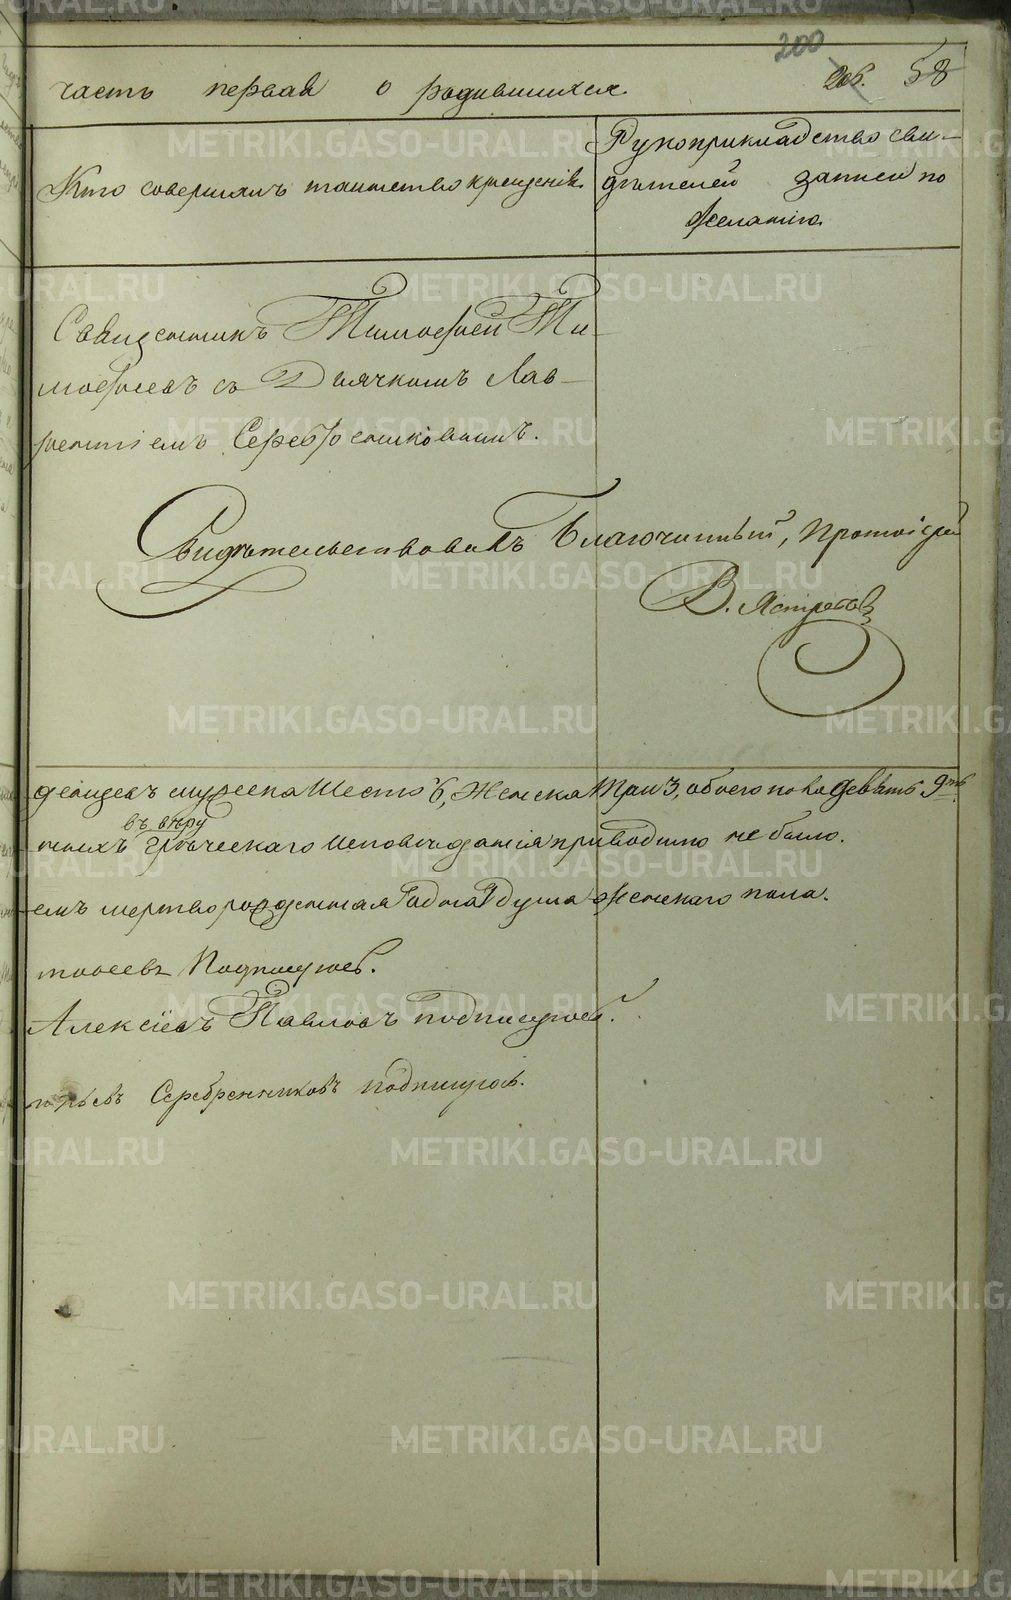 200
58
часть первая о родившихся.
Кто совершалъ таинство крещенія.
Рукоприкладство сви-
дѣтелей записи по
желанію.
Священникъ Тимофей Ти-
мофеевъ съ Дьячкомъ Лав-
рентіемъ Серебрениковымъ.
Свидѣтельствовалъ Благочинный, Протоіерей
В. Ястребовъ
денцевъ мужеска Шесть 6, Женска Три 3, обоего пола девять 9ть.
въ вѣру
ныхъ Греческаго Исповѣданія приводимо не было.
емъ мертворожденная одна 1 душа женскаго пола.
мофеевъ Подписуюсь.
Алексѣевъ Павловъ подписуюсь.
Серебренниковъ подписуюсь.
METRIKI.GASO-URAL.RU